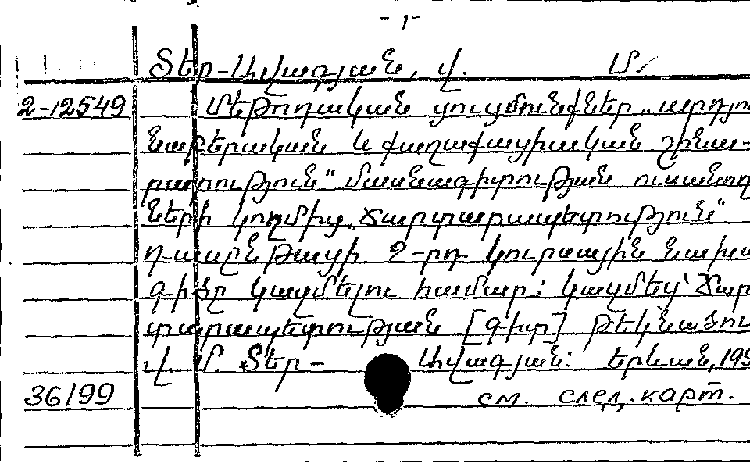 - 1 -
Տեր-Ավագյան, Վ. Մ.
2-12549 Մեթոդական ցուցմունքներ „արդյու
նաբերական և քաղաքացիական շինա-
րարություն" մասնագիտության ուսանող
ների կողմից „Ճարտարապետություն"
դասընթացի 2-րդ կուրսային նախա
գիծը կազմելու համար: Կազմեց՝ Ճար
տարապետության [գիտ] թեկնածու
Վ. Մ. Տեր- Ավագյան: Երևան, 195
36199 см. след. карт.